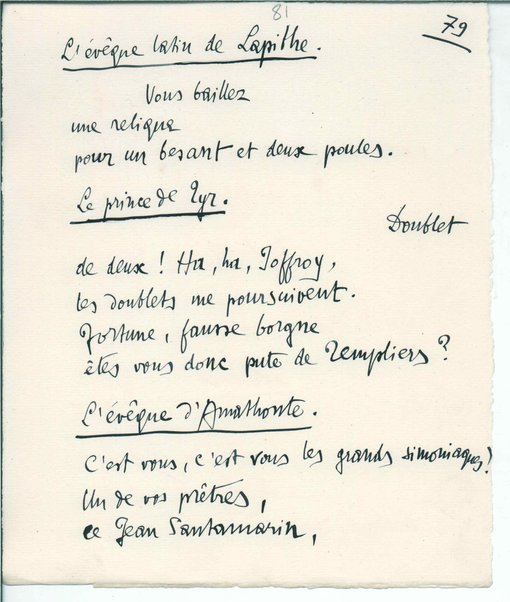 81
79
L'évêque latin de Lapithe.
Vous baillez
une relique
pour un besant et deux poules.
Le prince de Tyr.
Doublet
de deux ! Ha, ha, Joffroy,
les doublets me poursuivent.
Fortune, fausse borgne
êtes vous donc pute de Templiers ?
L'évêque d'Amathonte.
C'est vous, c'est vous les grands simoniaques !
Un de vos prêtres,
ce Jean Santamarin,